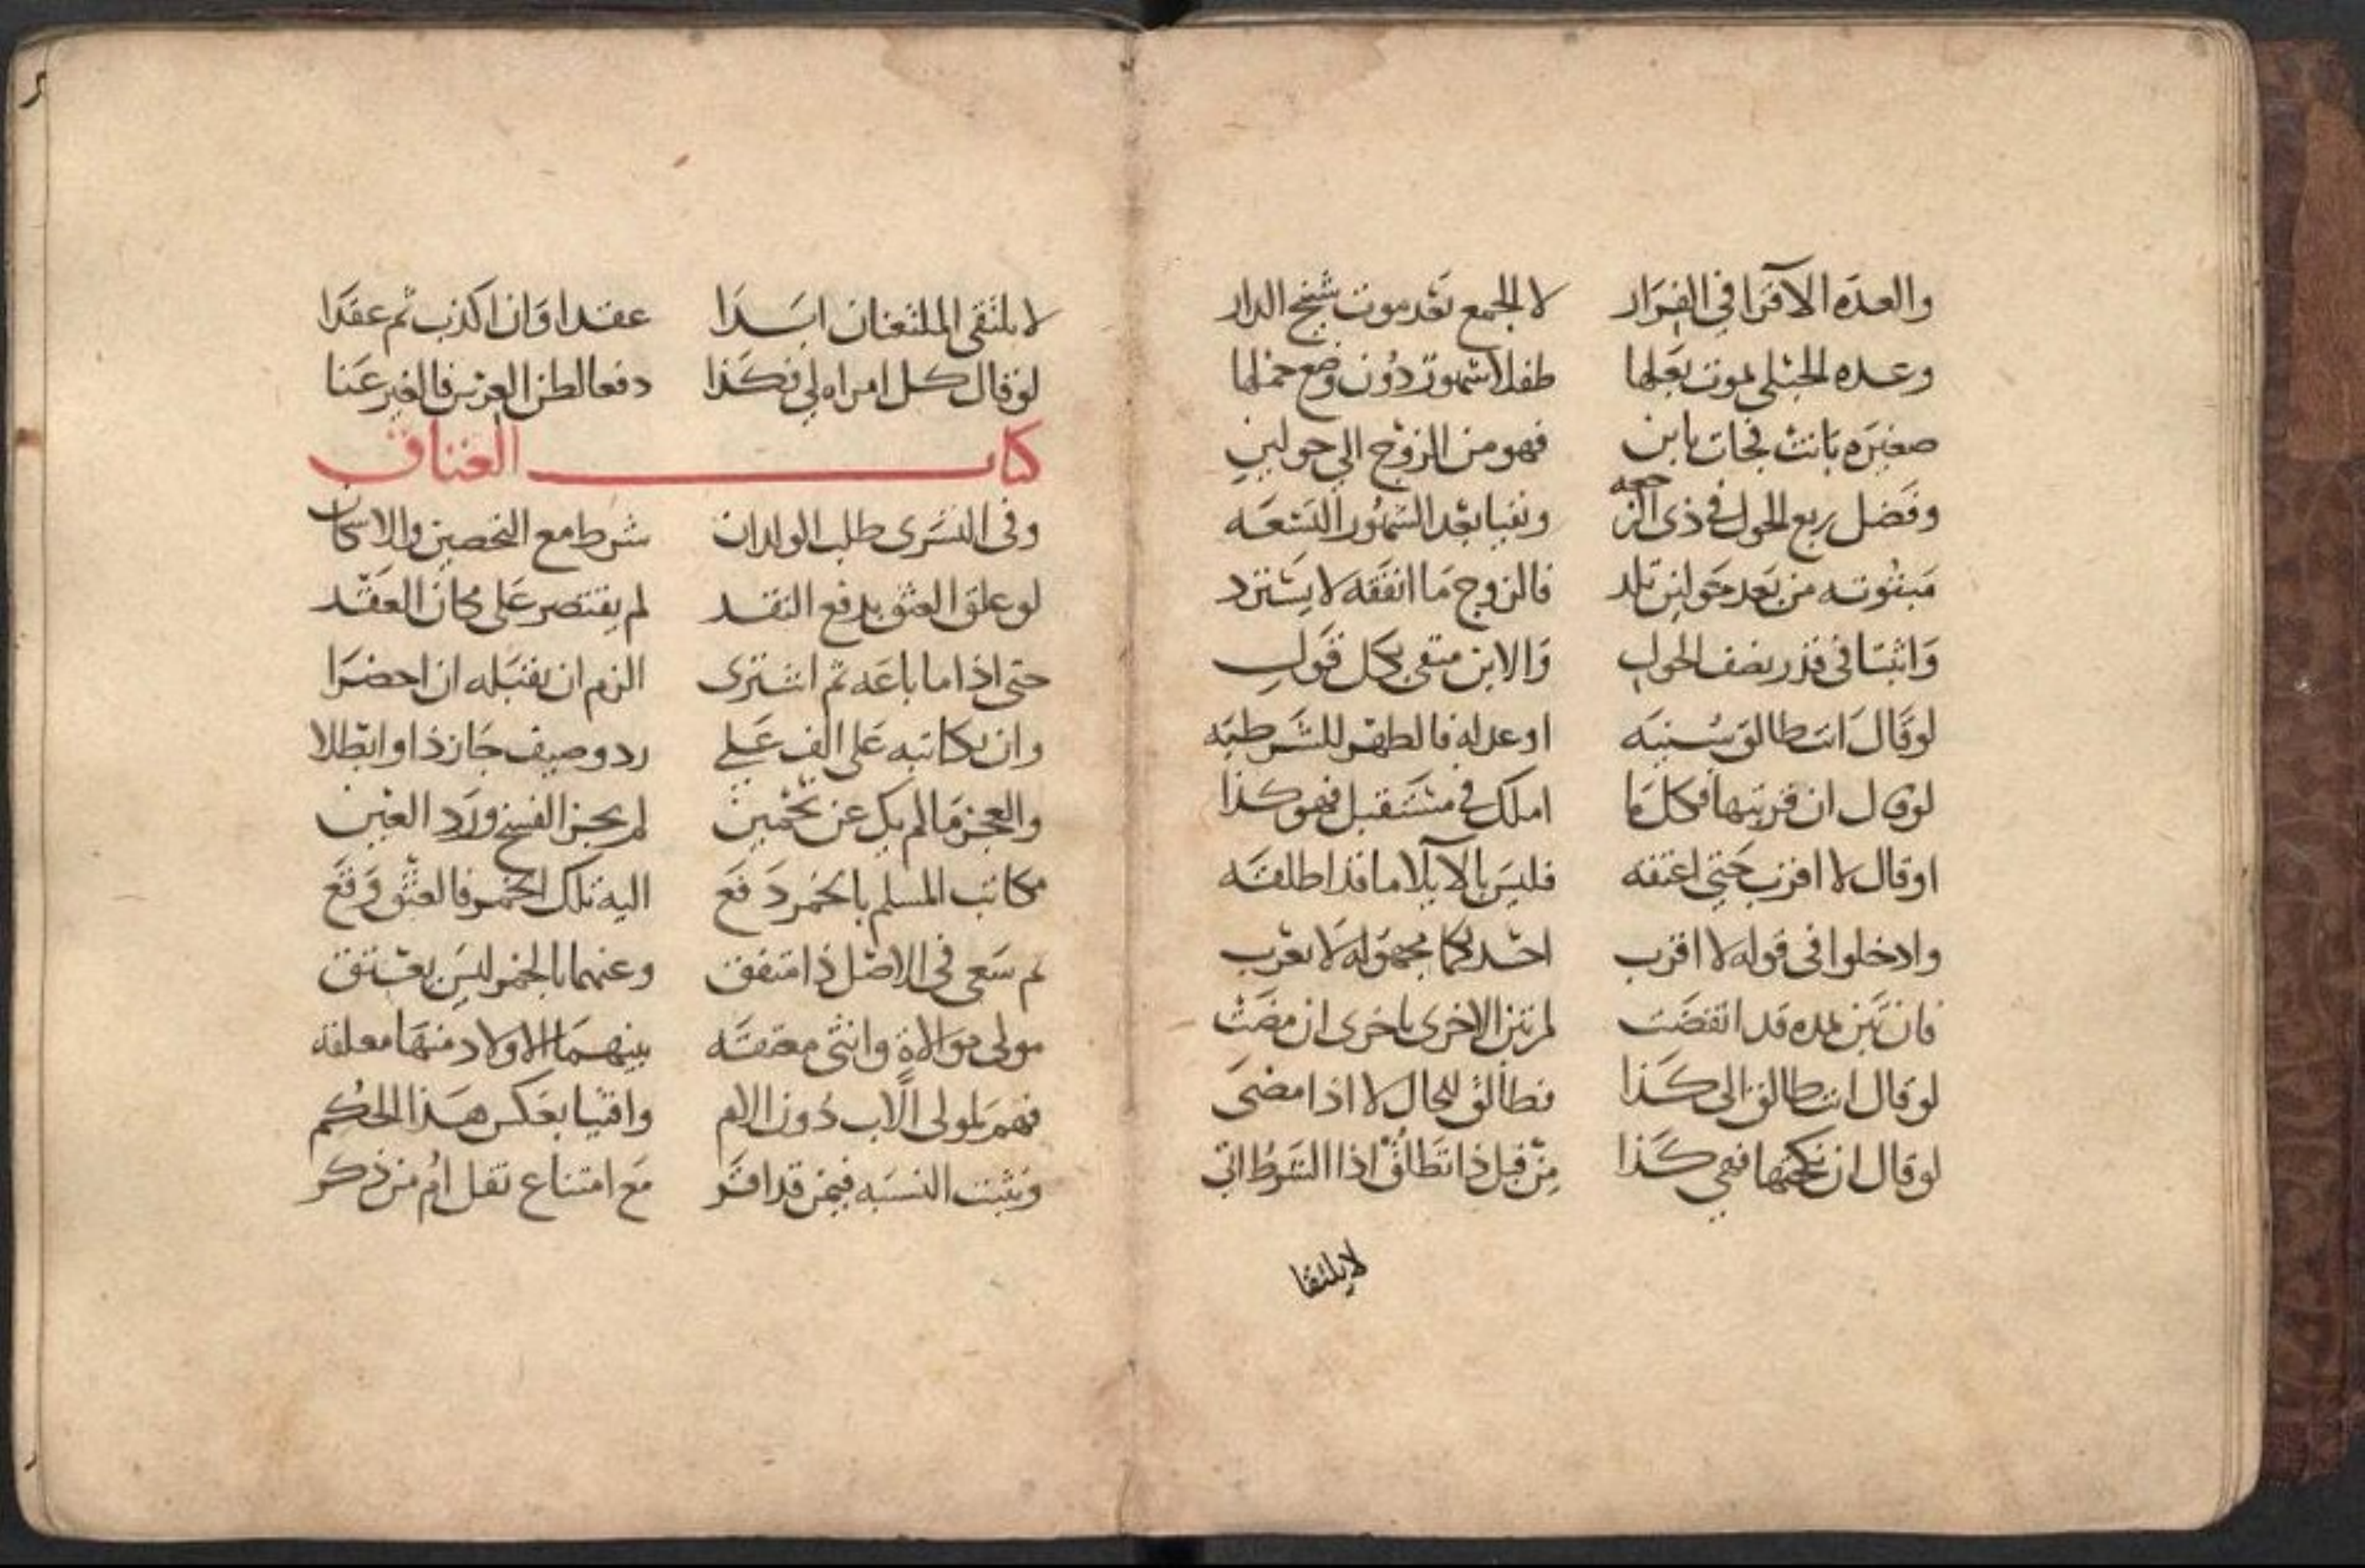 والعدة الاقرا في الفرار لا الجمع بعد موت شيخ الدار
وعده الحبلى بموت بعلها طفلا شهور دون وضع حملها
صغيره بانت فجات بابن فهو من الزوج الى حولين
وفضل ربع الحول في ذي الرجعه ونفيا بعد الشهور التسعه
مبتوته من بعد حولين تلد فالزوج ما انفقه لا يسترد
واثبتا في قدر نصف الحول والابن منفي بكل قول
لو قال انت طالق سنيه او عدله فالطهر للشرطيه
لو قال ان قربتها فكل ما املك في مستقبل فهو كذا
او قال لا اقرب حتى اعتقه فليس بالايلا ما قد اطلقه
وادخلوا في قوله لا اقرب احديكما مجهوله لا تعرب
فان تبن لمده قد انقضت لم تبن الاخرى باخرى ان مضت
لو قال انت طالق الى كذا فطالق للحال لا اذا مضى
لو قال ان نكحتها فهي كذا من قبل ذا تطلق اذا الشرط اتى
لا يلتقا
لا يلتقي الملتعنان ابدا عقدا وان اكذب ثم عقدا
لو قال كل امراه لي فكذا دفعا لظن العرس فالغير عنا
كتاب العتاق
وفي التسرى طلب الولدان شرط مع التحصين والاسكان
لو علق العتق بدفع النقد لم يقتصر على مكان العقد
حتى اذا ما باعه ثم اشترى الزم ان يقبله ان احضرا
وان يكاتبه على الف على رد وصيف جاز ذا وابطلا
والعجز ما لم يك عن نجمين لم يجز الفسخ ورد العين
مكاتب المسلم بالخمر دفع اليه تلك الخمر فالعتق وقع
ثم سعى في الاصل ذا متفق وعنهما بالخمر ليس يعتق
مولى موالاة وانثى معتقه بينهما الاولاد منها معلقه
فهم لمولى الاب دون الام وافتيا بعكس هذا الحكم
وتثبت النسبه فيمن قد اقر مع امتناع نقل ام من ذكر